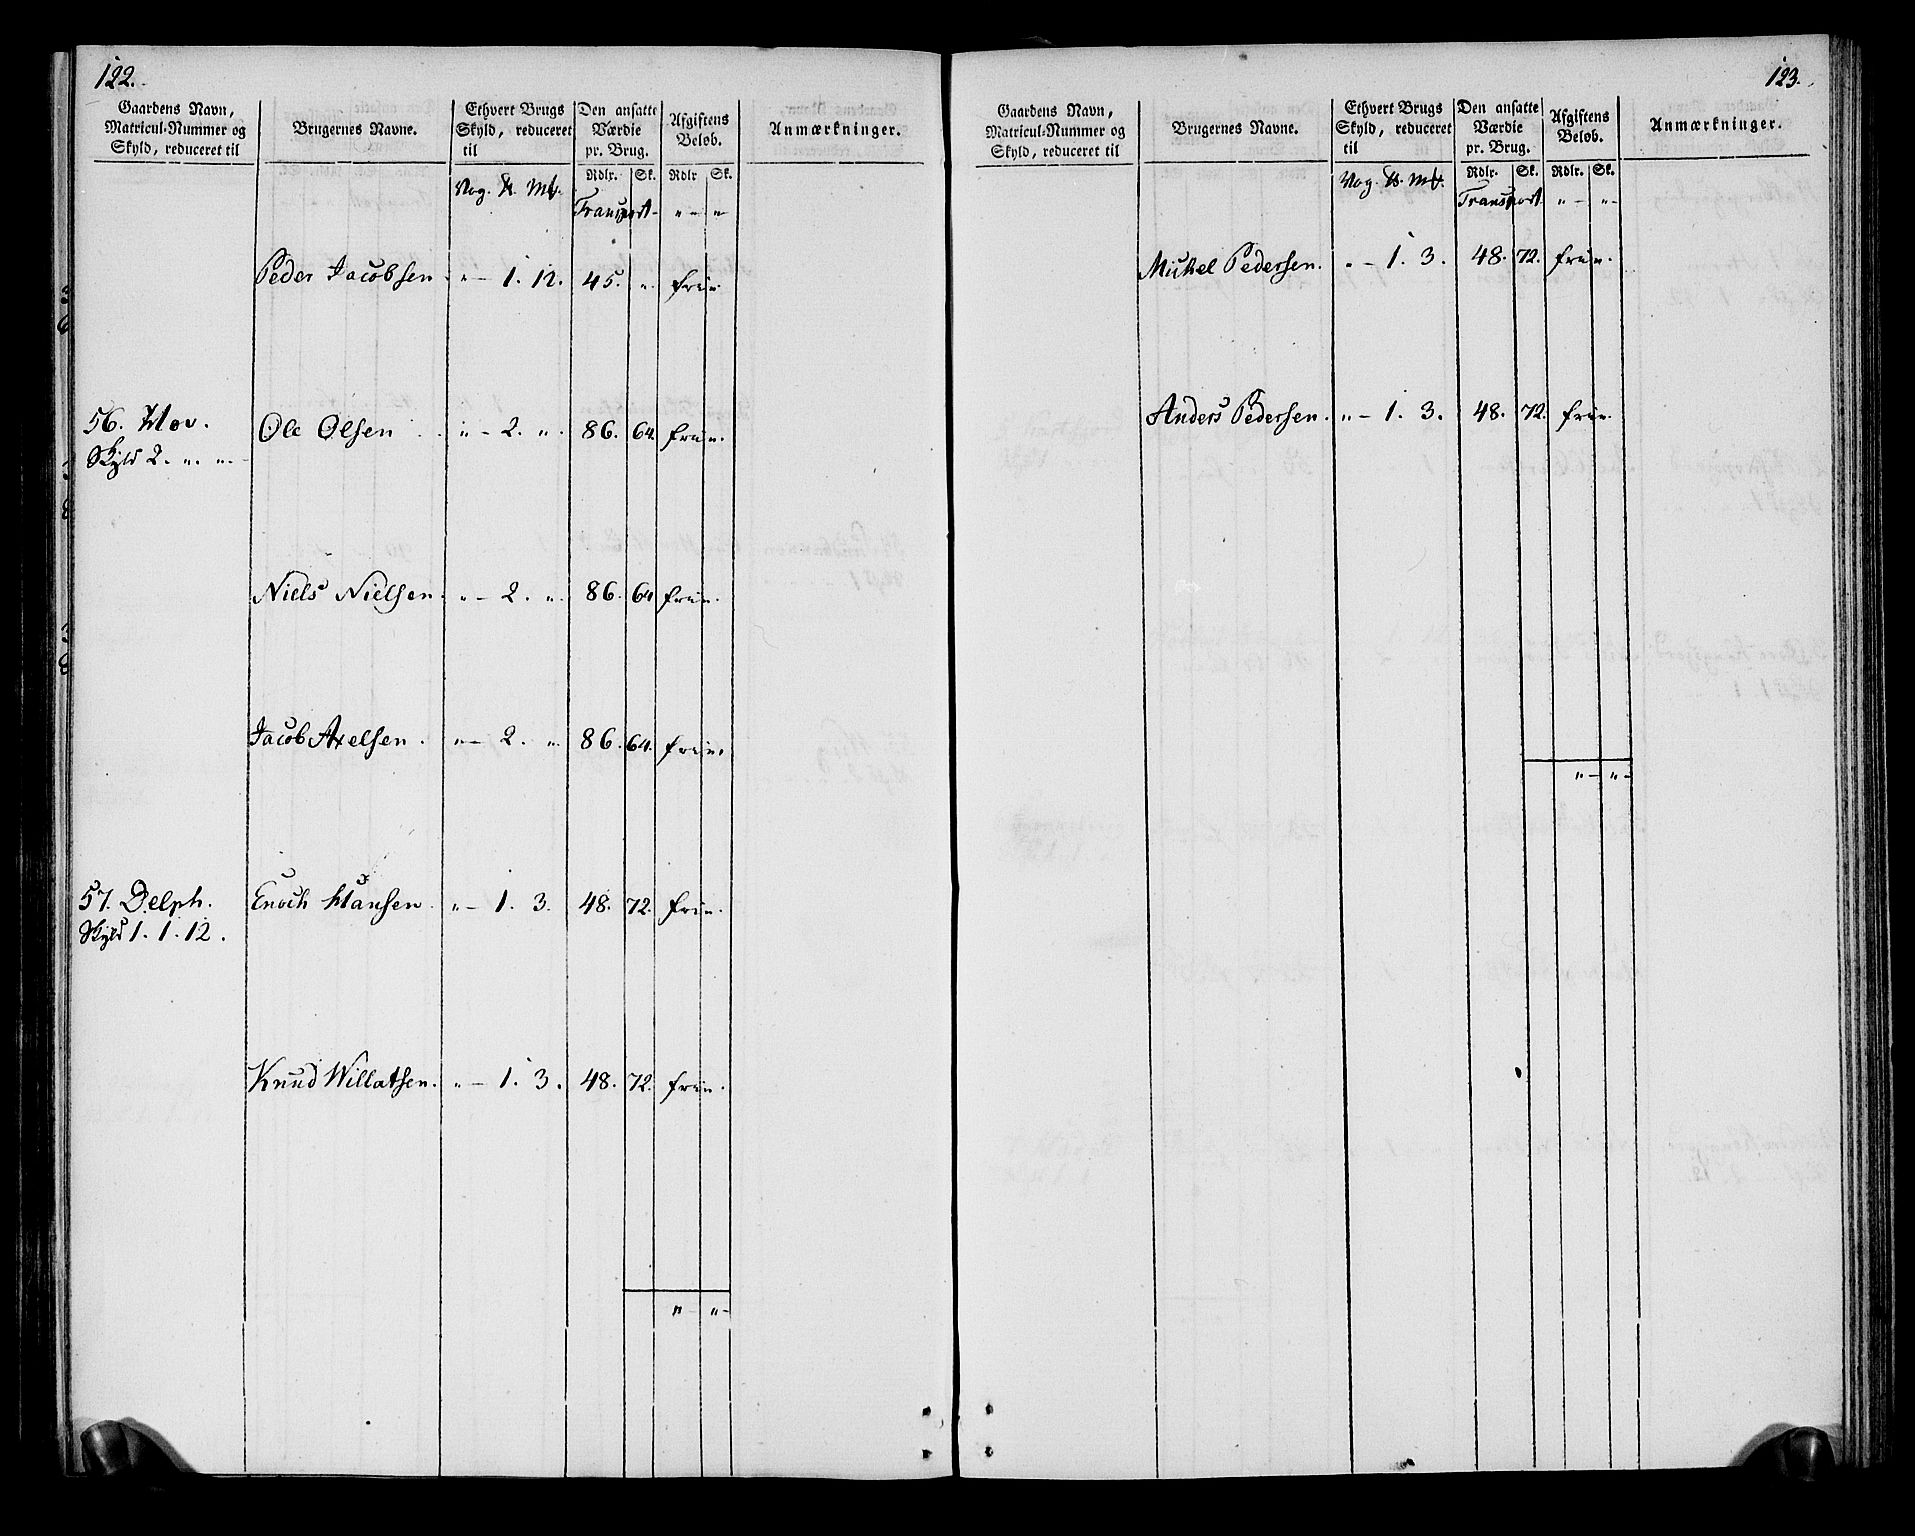 122.
Gaardens Navn, Matricul-Nummer og Skyld, reduceret til | Brugernes Navne. | Ethvert Brugs Skyld, reduceret til | Den ansatte Værdie pr. Brug. | Afgiftens Beløb. | Anmærkninger.
Vog. ℔. Mk. | Rdlr. | Sk. | Rdlr | Sk.
Transport - " - " -
Peder Jacobsen. " - 1. 12. 45. ". frie.
56. Mov. Ole Olsen " - 2. ". 86. 64. frie.
Skyld 2. ". ". -
Niels Nielsen. " - 2. ". 86. 64 frie.
Jacob Axelsen. " - 2. ". 86. 64. frie.
57. Delph. Enoch Hansen. " - 1. 3. 48. 72. frie.
Skyld 1. 1. 12.
Knud Willatsen. " - 1. 3. 48. 72. frie.
" - " -
123.
Gaardens Navn, Matricul-Nummer og Skyld, reduceret til | Brugernes Navne. | Ethvert Brugs Skyld, reduceret til | Den ansatte Værdie pr. Brug. | Afgiftens Beløb. | Anmærkninger.
Vog. ℔. Mk. | Rdlr. | Sk. | Rdlr. | Sk.
Transport " - " -
Michel Pedersen. " - 1. 3. 48. 72. frie.
Anders Pedersen. " - 1. 3. 48. 72. frie.
" - " -